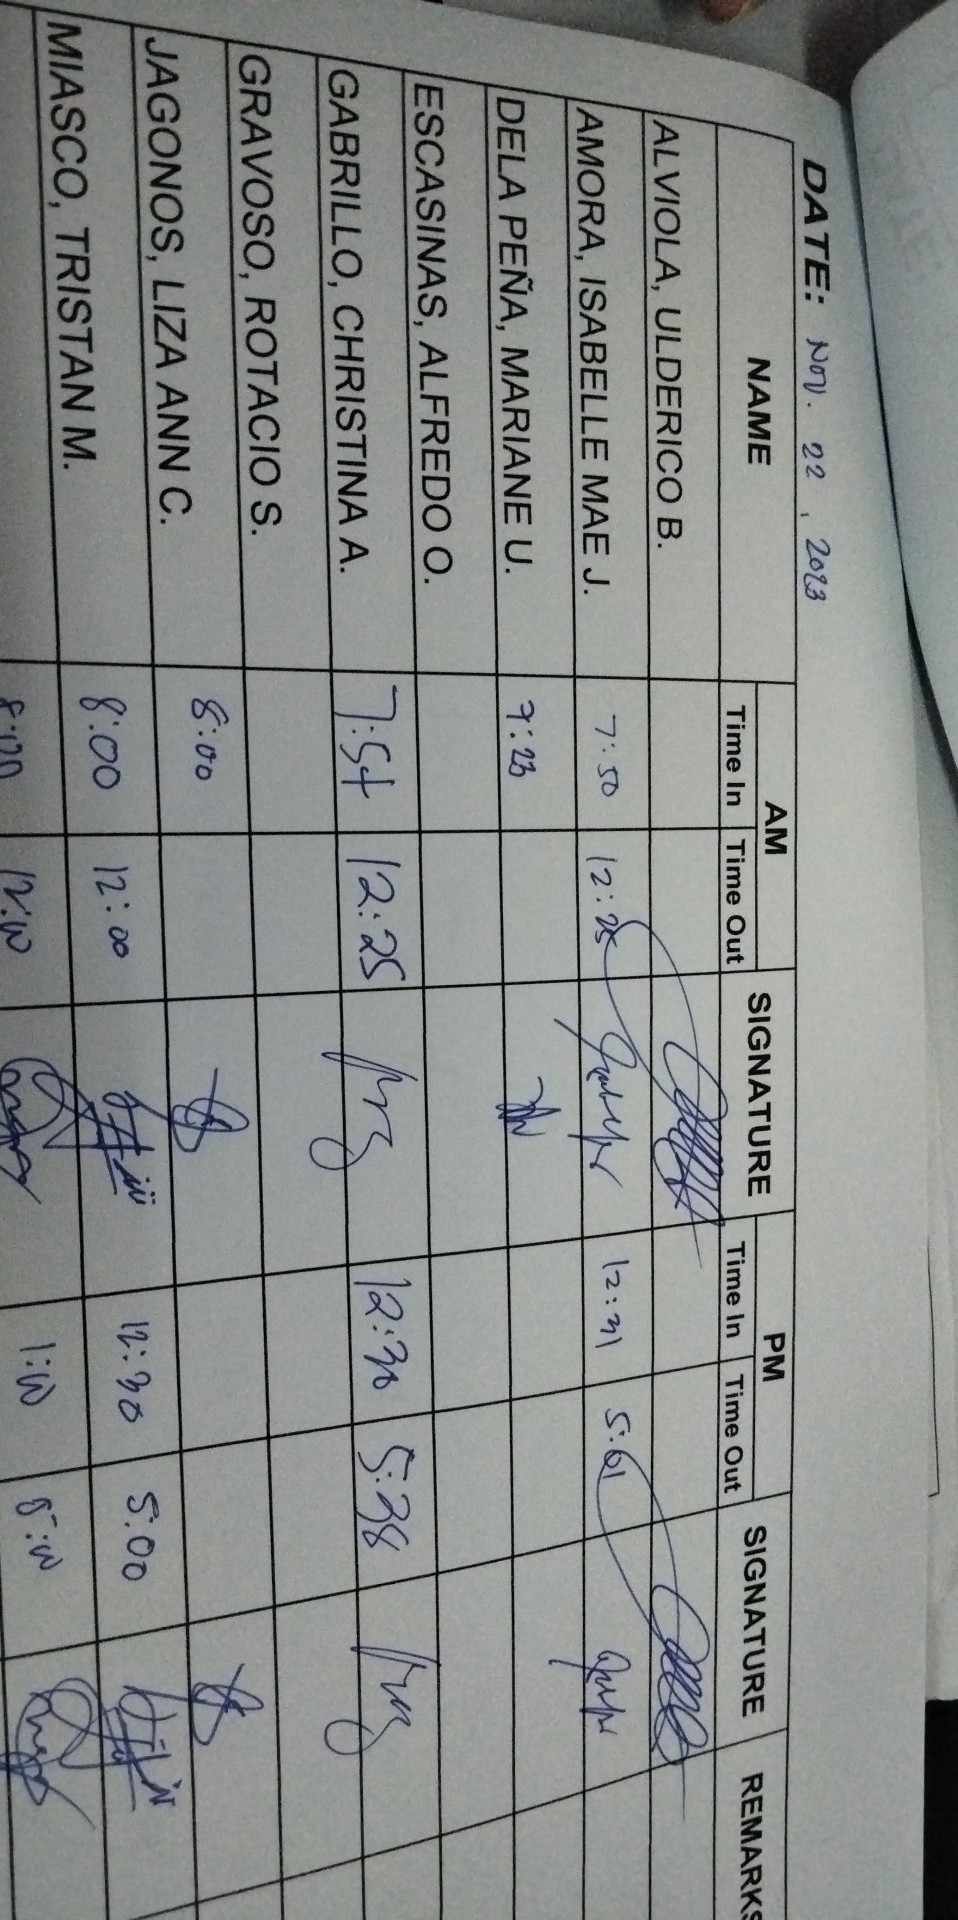 DATE: Nov. 22, 2023
NAME AM SIGNATURE PM SIGNATURE REMARKS
Time In Time Out Time In Time Out
ALVIOLA, ULDERICO B.
AMORA, ISABELLE MAE J. 7:50 12:25 12:31
DELA PEÑA, MARIANE U. 7:23
ESCASINAS, ALFREDO O.
GABRILLO, CHRISTINA A. 7:54 12:25 12:30 5:38
GRAVOSO, ROTACIO S.
JAGONOS, LIZA ANN C. 8:00
MIASCO, TRISTAN M. 8:00 12:00 12:30 5:00
8:00 12:00 1:00 5:00